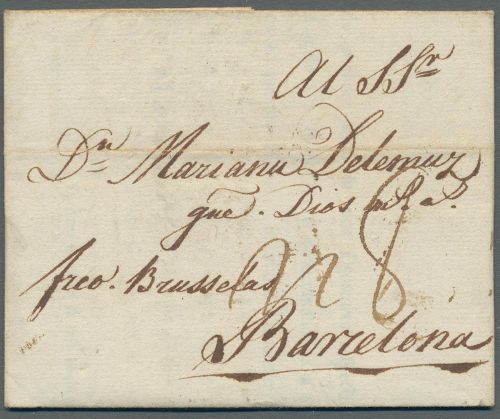 Al SSr
Dn Marianu Delemuz
gue. Dios ms. as.
frco. Brusselas
Barcelona